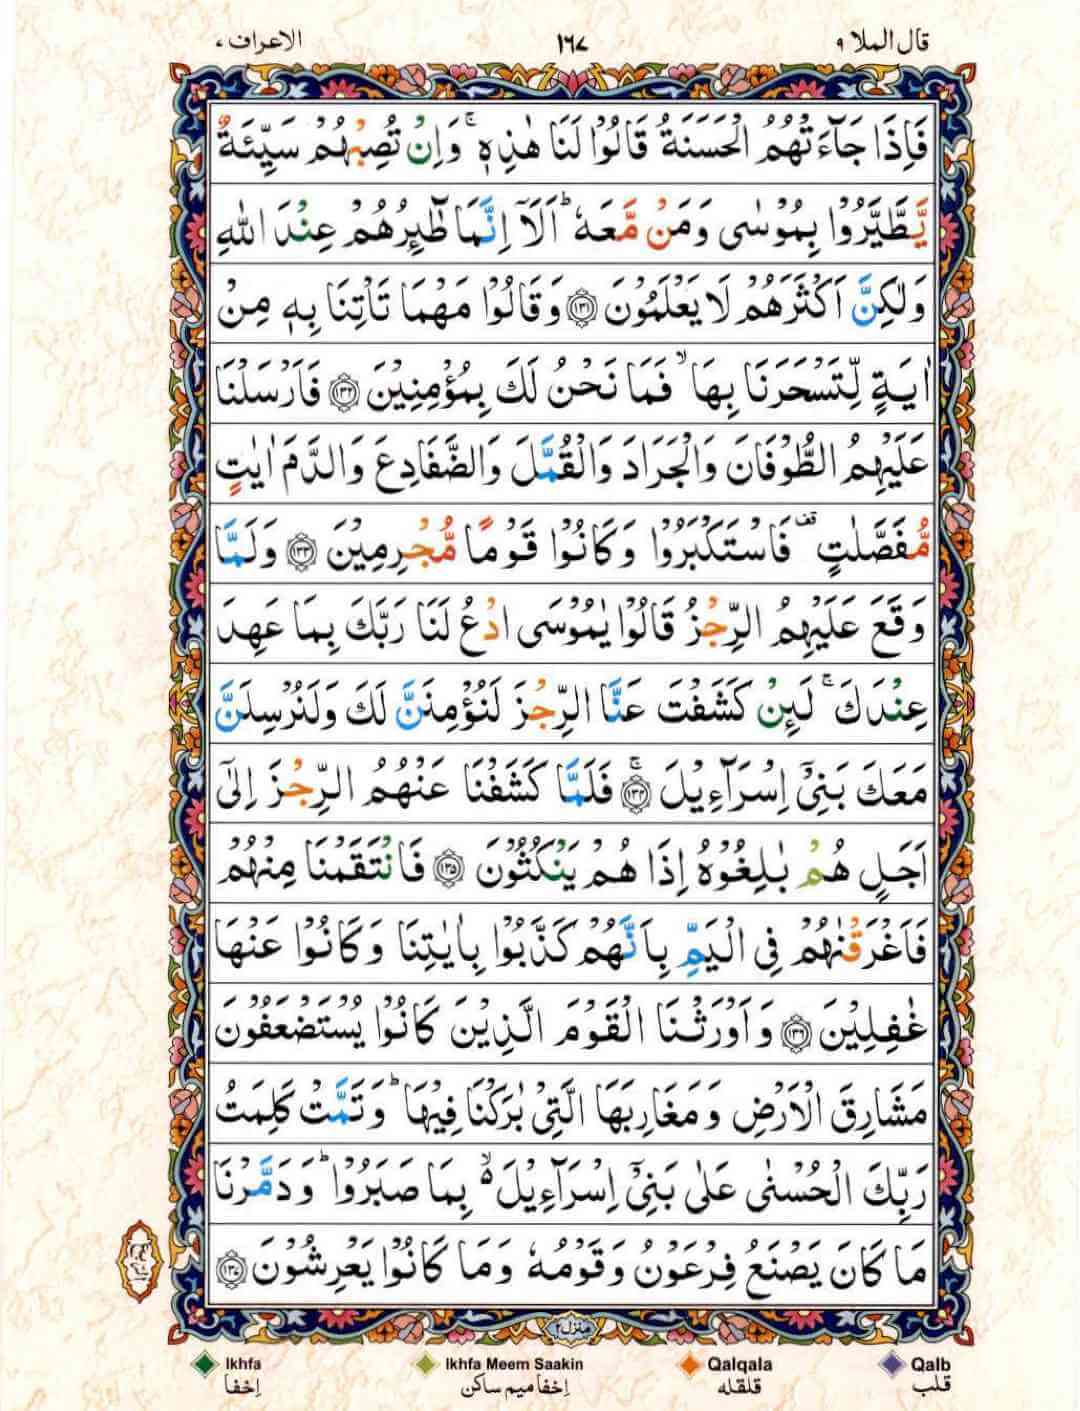 قال الملا ٩ ١٦٧ الاعراف ٧
فَاِذَا جَآءَتْهُمُ الْحَسَنَةُ قَالُوْا لَنَا هٰذِهٖ ۚ وَاِنْ تُصِبْهُمْ سَيِّئَةٌ
يَّطَّيَّرُوْا بِمُوْسٰى وَمَنْ مَّعَهٗ ؕ اَلَاۤ اِنَّمَا طٰٓئِرُهُمْ عِنْدَ اللّٰهِ
وَلٰكِنَّ اَكْثَرَهُمْ لَا يَعْلَمُوْنَ ﴿١٣١﴾ وَقَالُوْا مَهْمَا تَاْتِنَا بِهٖ مِنْ
اٰيَةٍ لِّتَسْحَرَنَا بِهَا ۙ فَمَا نَحْنُ لَكَ بِمُؤْمِنِيْنَ ﴿١٣٢﴾ فَاَرْسَلْنَا
عَلَيْهِمُ الطُّوْفَانَ وَالْجَرَادَ وَالْقُمَّلَ وَالضَّفَادِعَ وَالدَّمَ اٰيٰتٍ
مُّفَصَّلٰتٍ ۟قف فَاسْتَكْبَرُوْا وَكَانُوْا قَوْمًا مُّجْرِمِيْنَ ﴿١٣٣﴾ وَلَمَّا
وَقَعَ عَلَيْهِمُ الرِّجْزُ قَالُوْا يٰمُوْسَى ادْعُ لَنَا رَبَّكَ بِمَا عَهِدَ
عِنْدَكَ ۚ لَئِنْ كَشَفْتَ عَنَّا الرِّجْزَ لَنُؤْمِنَنَّ لَكَ وَلَنُرْسِلَنَّ
مَعَكَ بَنِيْۤ اِسْرَآءِيْلَ ﴿١٣٤﴾ ۚ فَلَمَّا كَشَفْنَا عَنْهُمُ الرِّجْزَ اِلٰٓى
اَجَلٍ هُمْ بٰلِغُوْهُ اِذَا هُمْ يَنْكُثُوْنَ ﴿١٣٥﴾ فَانْتَقَمْنَا مِنْهُمْ
فَاَغْرَقْنٰهُمْ فِى الْيَمِّ بِاَنَّهُمْ كَذَّبُوْا بِاٰيٰتِنَا وَكَانُوْا عَنْهَا
غٰفِلِيْنَ ﴿١٣٦﴾ وَاَوْرَثْنَا الْقَوْمَ الَّذِيْنَ كَانُوْا يُسْتَضْعَفُوْنَ
مَشَارِقَ الْاَرْضِ وَمَغَارِبَهَا الَّتِيْ بٰرَكْنَا فِيْهَا ؕ وَتَمَّتْ كَلِمَتُ
رَبِّكَ الْحُسْنٰى عَلٰى بَنِيْۤ اِسْرَآءِيْلَ ۙ۬ بِمَا صَبَرُوْا ؕ وَدَمَّرْنَا
مَا كَانَ يَصْنَعُ فِرْعَوْنُ وَقَوْمُهٗ وَمَا كَانُوْا يَعْرِشُوْنَ ﴿١٣٧﴾
منزل ٢
Ikhfa Ikhfa Meem Saakin Qalqala Qalb
اِخفا اِخفا میم ساکن قلقله قلب